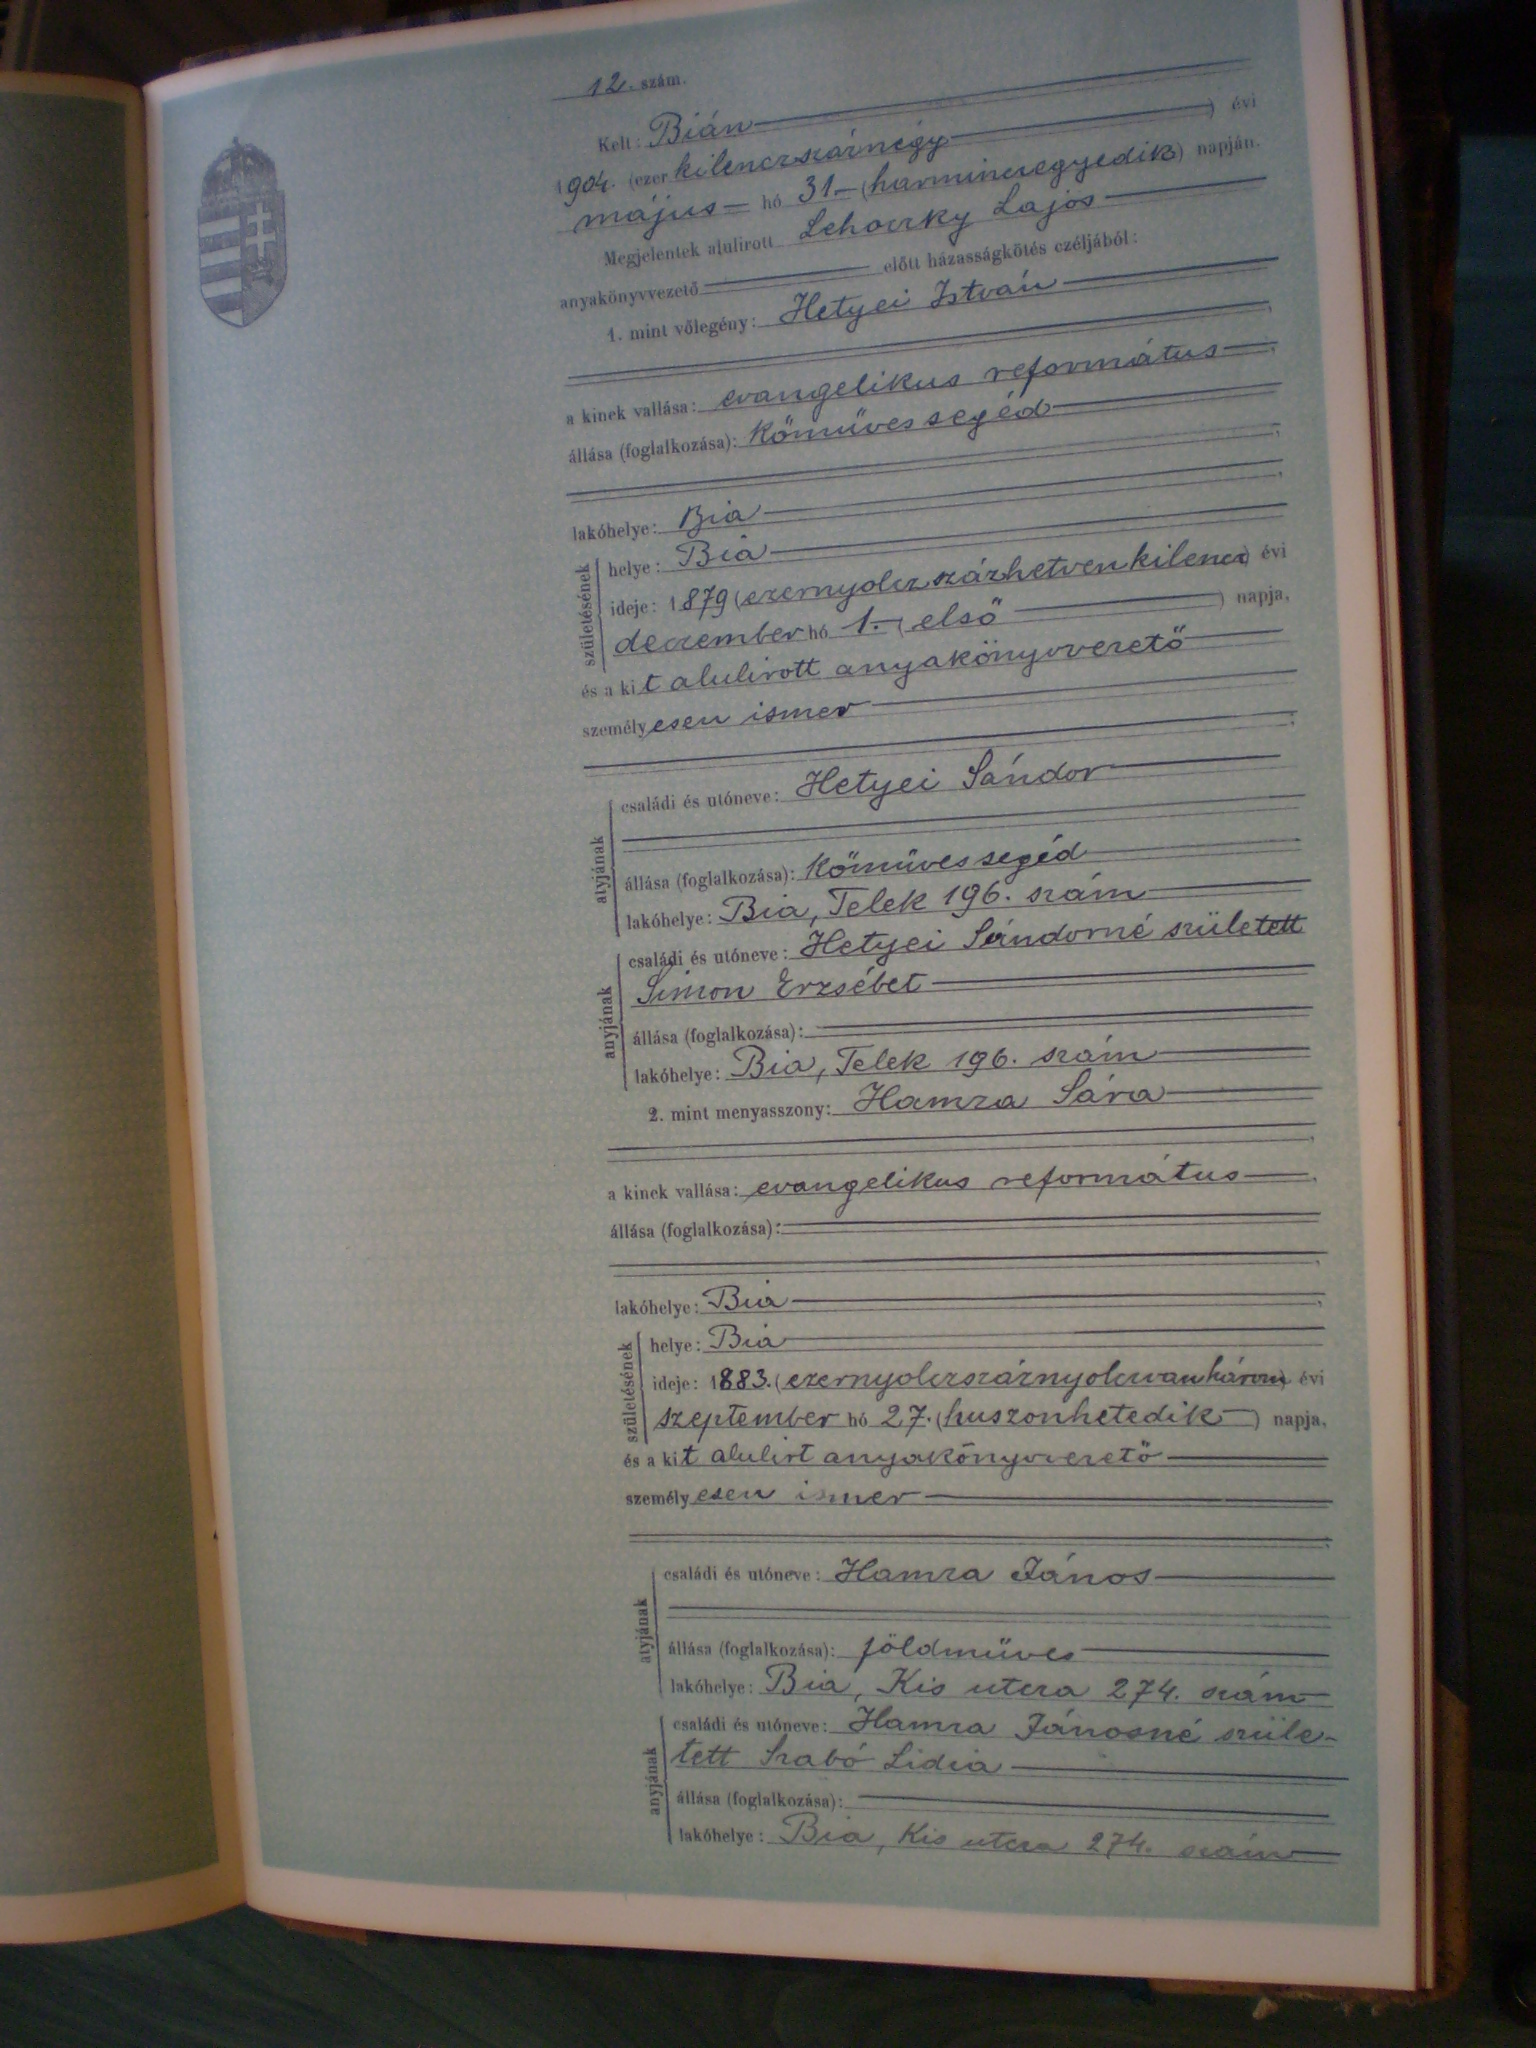 12. szám.
Kelt: Bián
1904. (ezer kilenczszáznégy) évi
május hó 31 (harminczegyedik) napján.
Megjelentek alulirott Lehoczky Lajos
anyakönyvvezető előtt házasságkötés czéljából:
1. mint vőlegény: Hetyei István
a kinek vallása: evangelikus református
állása (foglalkozása): kőmüvessegéd
lakóhelye: Bia
születésének
helye: Bia
ideje: 1879 (ezernyolczszázhetvenkilencz) évi
deczember hó 1. (első) napja,
és a kit alulirott anyakönyvvezető
személyesen ismer
atyjának
családi és utóneve: Hetyei Sándor
állása (foglalkozása): kőmüvessegéd
lakóhelye: Bia, Telek 196. szám
anyjának
családi és utóneve: Hetyei Sándorné született
Simon Erzsébet
állása (foglalkozása):
lakóhelye: Bia, Telek 196. szám
2. mint menyasszony: Hamza Sára
a kinek vallása: evangelikus református
állása (foglalkozása):
lakóhelye: Bia
születésének
helye: Bia
ideje: 1883. (ezernyolczszáznyolczvanhárom) évi
szeptember hó 27. (huszonhetedik) napja,
és a kit alulirt anyakönyvvezető
személyesen ismer
atyjának
családi és utóneve: Hamza János
állása (foglalkozása): földmüves
lakóhelye: Bia, Kis utcza 274. szám
anyjának
családi és utóneve: Hamza Jánosné szüle-
tett Szabó Lidia
állása (foglalkozása):
lakóhelye: Bia, Kis utcza 274. szám